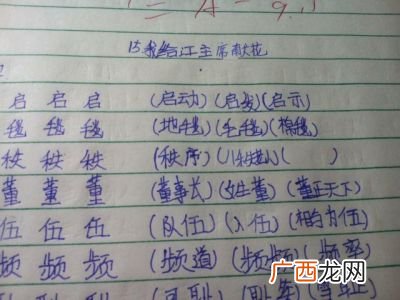 15我给江主席献花
启 启 启 (启动)(启发)(启示)
毯 毯 毯 (地毯)(毛毯)(棉毯)
秩 秩 秩 (秩序)( )
董 董 董 (董事长)(姓董)(董正天下)
伍 伍 伍 (队伍)(入伍)(相与为伍)
频 频 频 (频道)(频频)(频率)
广西龙网